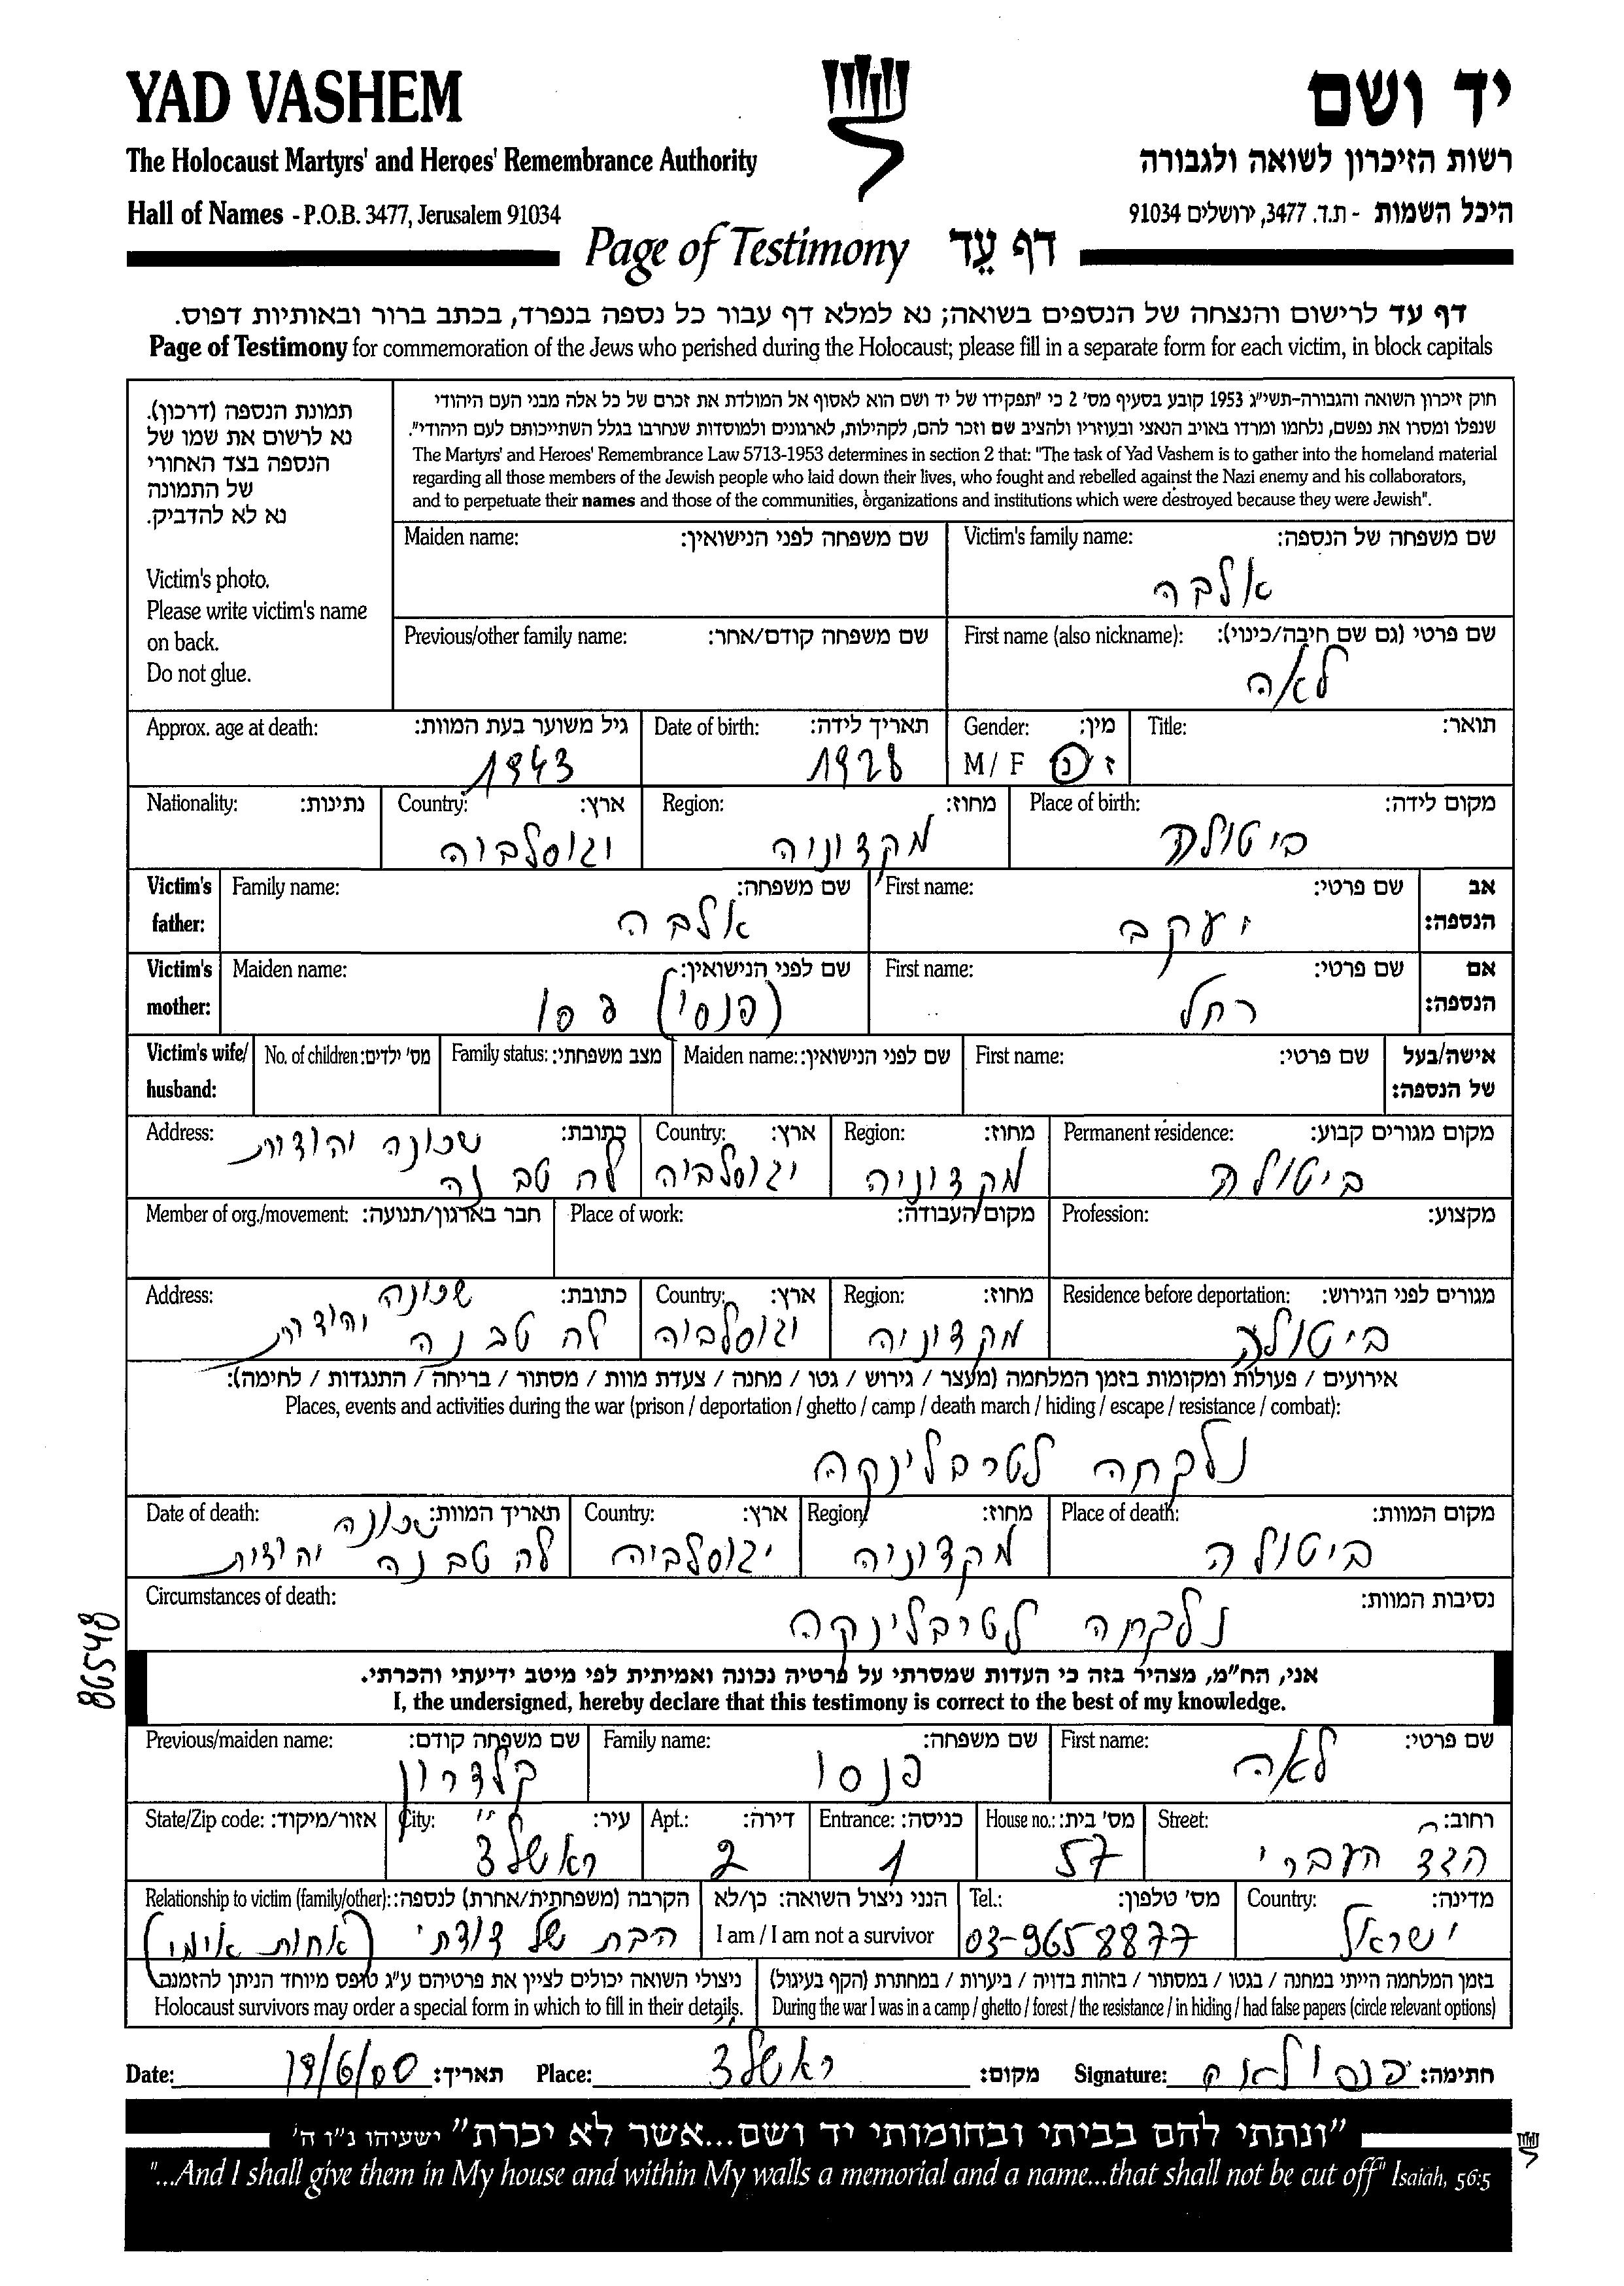 YAD VASHEM
יד ושם
The Holocaust Martyrs' and Heroes' Remembrance Authority
רשות הזיכרון לשואה ולגבורה
Hall of Names - P.O.B. 3477, Jerusalem 91034
היכל השמות - ת.ד. 3477, ירושלים 91034
Page of Testimony דף עֵד
דף עד לרישום והנצחה של הנספים בשואה; נא למלא דף עבור כל נספה בנפרד, בכתב ברור ובאותיות דפוס.
Page of Testimony for commemoration of the Jews who perished during the Holocaust; please fill in a separate form for each victim, in block capitals
תמונת הנספה (דרכון).
נא לרשום את שמו של
הנספה בצד האחורי
של התמונה
נא לא להדביק.
Victim's photo.
Please write victim's name
on back.
Do not glue.
חוק זיכרון השואה והגבורה-תשי"ג 1953 קובע בסעיף מס' 2 כי "תפקידו של יד ושם הוא לאסוף אל המולדת את זכרם של כל אלה מבני העם היהודי
שנפלו ומסרו את נפשם, נלחמו ומרדו באויב הנאצי ובעוזריו ולהציב שם וזכר להם, לקהילות, לארגונים ולמוסדות שנחרבו בגלל השתייכותם לעם היהודי".
The Martyrs' and Heroes' Remembrance Law 5713-1953 determines in section 2 that: "The task of Yad Vashem is to gather into the homeland material
regarding all those members of the Jewish people who laid down their lives, who fought and rebelled against the Nazi enemy and his collaborators,
and to perpetuate their names and those of the communities, organizations and institutions which were destroyed because they were Jewish".
Victim's family name: שם משפחה של הנספה:
אלבה
Maiden name: שם משפחה לפני הנישואין:
First name (also nickname): שם פרטי (גם שם חיבה/כינוי):
לאה
Previous/other family name: שם משפחה קודם/אחר:
Title: תואר:
Gender: מין:
M / F ז נ
Date of birth: תאריך לידה:
1928
Approx. age at death: גיל משוער בעת המוות:
1943
Place of birth: מקום לידה:
ביטולה
Region: מחוז:
מקדוניה
Country: ארץ:
יגוסלביה
Nationality: נתינות:
Victim's father: אב הנספה:
First name: שם פרטי:
יעקב
Family name: שם משפחה:
אלבה
Victim's mother: אם הנספה:
First name: שם פרטי:
רחל
Maiden name: שם לפני הנישואין:
(פנסי)
Victim's wife/ husband: אישה/בעל של הנספה:
First name: שם פרטי:
Maiden name: שם לפני הנישואין:
Family status: מצב משפחתי:
No. of children: מס' ילדים:
Permanent residence: מקום מגורים קבוע:
ביטולה
Region: מחוז:
מקדוניה
Country: ארץ:
יגוסלביה
Address: כתובת:
שכונה יהודית
לה טבנה
Profession: מקצוע:
Place of work: מקום העבודה:
Member of org./movement: חבר בארגון/תנועה:
Residence before deportation: מגורים לפני הגירוש:
ביטולה
Region: מחוז:
מקדוניה
Country: ארץ:
יגוסלביה
Address: כתובת:
שכונה יהודית
לה טבנה
אירועים / פעולות ומקומות בזמן המלחמה (מעצר / גירוש / גטו / מחנה / צעדת מוות / מסתור / בריחה / התנגדות / לחימה):
Places, events and activities during the war (prison / deportation / ghetto / camp / death march / hiding / escape / resistance / combat):
נלקחה לטרבלינקה
Place of death: מקום המוות:
ביטולה
Region: מחוז:
מקדוניה
Country: ארץ:
יגוסלביה
Date of death: תאריך המוות:
שכונה
לה טבנה יהודית
Circumstances of death: נסיבות המוות:
נלקחה לטרבלינקה
86548
אני, הח"מ, מצהיר בזה כי העדות שמסרתי על פרטיה נכונה ואמיתית לפי מיטב ידיעתי והכרתי.
I, the undersigned, hereby declare that this testimony is correct to the best of my knowledge.
First name: שם פרטי:
לאה
Family name: שם משפחה:
פנסו
Previous/maiden name: שם משפחה קודם:
קלדרון
Street: רחוב:
הגד העברי
House no.: מס' בית:
57
Entrance: כניסה:
1
Apt.: דירה:
2
City: עיר:
ראשל"צ
State/Zip code: אזור/מיקוד:
Country: מדינה:
ישראל
Tel.: מס' טלפון:
03-9658877
הנני ניצול השואה: כן/לא
I am / I am not a survivor
Relationship to victim (family/other): הקרבה (משפחתית/אחרת) לנספה:
הבת של דודתי (אחות אימי)
בזמן המלחמה הייתי במחנה / בגטו / במסתור / בזהות בדויה / ביערות / במחתרת (הקף בעיגול)
During the war I was in a camp / ghetto / forest / the resistance / in hiding / had false papers (circle relevant options)
ניצולי השואה יכולים לציין את פרטיהם ע"ג טופס מיוחד הניתן להזמנה.
Holocaust survivors may order a special form in which to fill in their details.
Signature: חתימה: פנסו לאה
Place: מקום: ראשל"צ
Date: תאריך: 19/6/00
"ונתתי להם בביתי ובחומותי יד ושם...אשר לא יכרת" ישעיהו נ"ו ה'
"...And I shall give them in My house and within My walls a memorial and a name...that shall not be cut off" Isaiah, 56:5